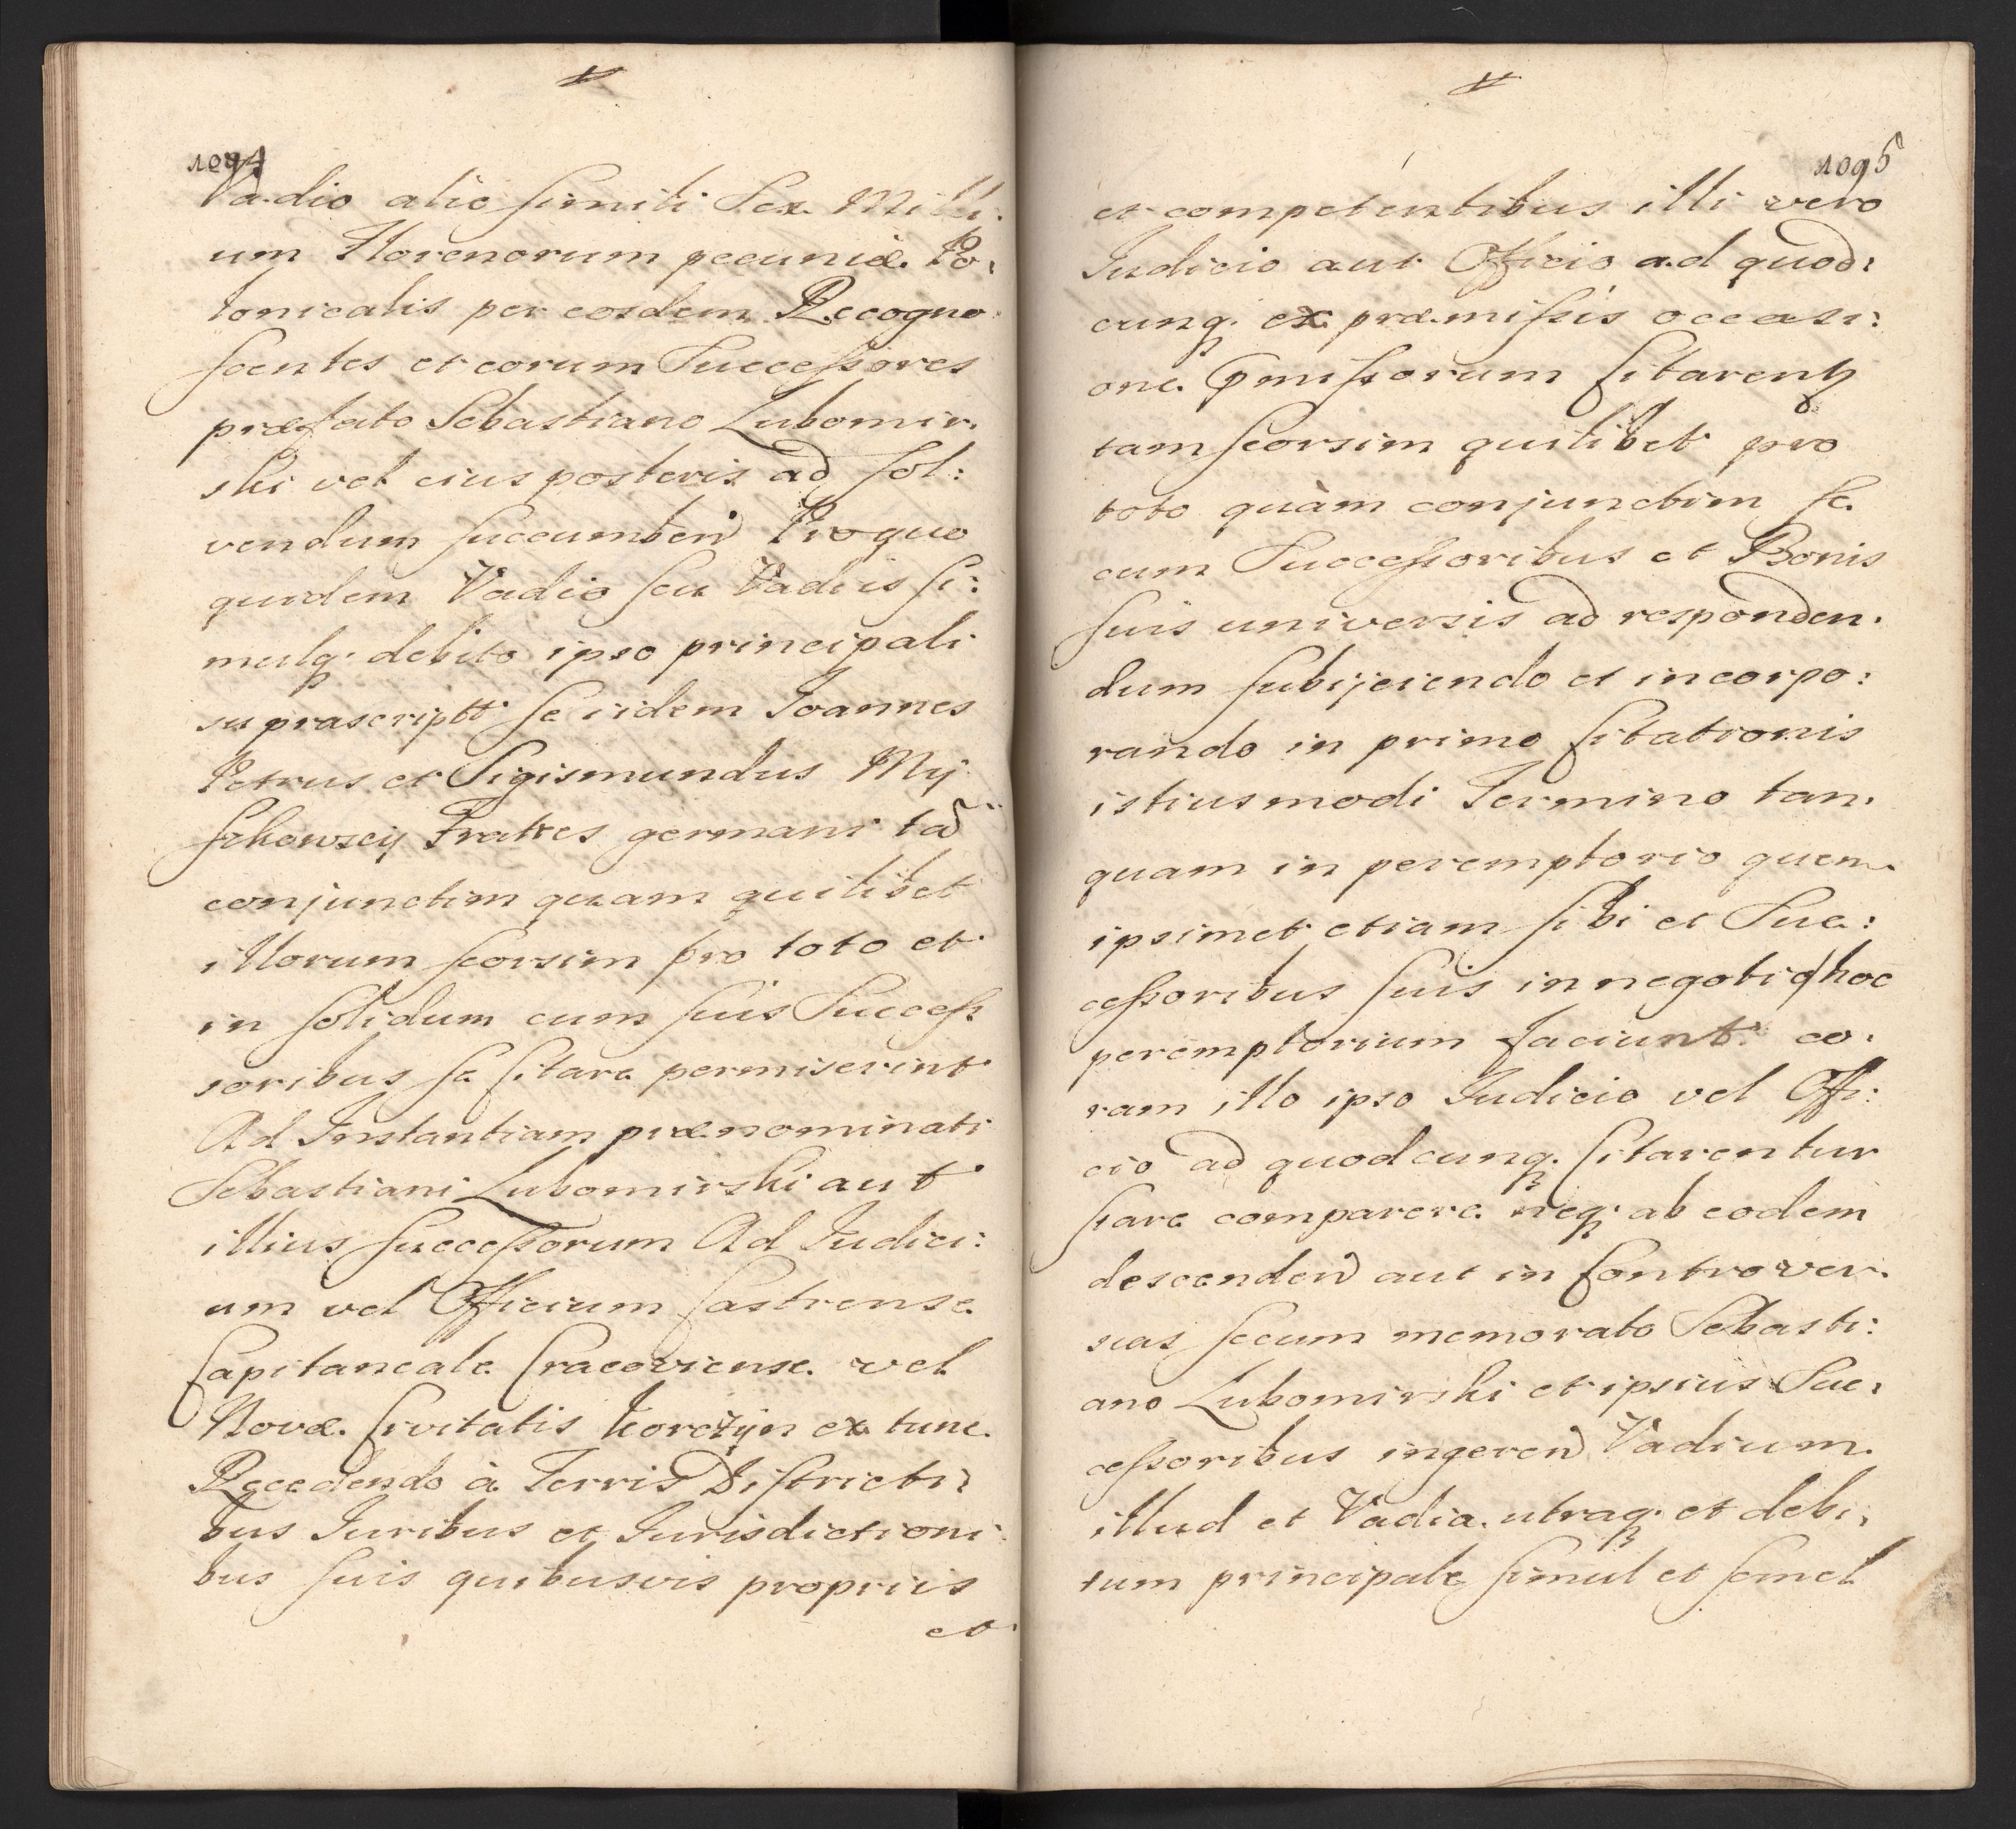 1094
Vadio alio simili Sex Milli:
um Florenorum pecuniæ Po:
lonicalis per eosdem Recogno
scentes et eorum Successores
præfato Sebastiano Lubomir.
ski vel eius posteris ad sol:
vendum succumbend Pro quo
quidem Vadio seu Vadiis si:
mulq. debito ipso principali
suprascriptt se iidem Joannes
Petrus et Sigismundus My
szkowscij Fratres germani tad
conjunctim quam quilibet
illorum seorsim pro toto et
in solidum cum suis Success
soribus se Citare permiserint
Ad Instantiam prænominati
Sebastiani Lubomirski aut
illius successorum Ad Judici:
um vel Officium Castrense
Capitaneale Cracoviense vel
Novæ Civitatis Korczyn ex tunc
Recedendo à Terris Districti:
bus Juribus et Jurisdictioni
bus suis quibusvis propriis
et
1095
et competentibus illi vero
Judicio aut Officio ad quod:
cunq. ex præmissis occasi:
one pmissorum Citarentz
tam seorsim quilibet pro
toto quàm conjunctim se
cum Successoribus et Bonis
suis universis ad responden.
dum subijciendo et incorpo:
rando in primo Citationis
istiusmodi Termino tan.
quam in peremptorio quem
ipsimet etiam sibi et Suc:
cessoribus suis in negotio hoc
peremptorium faciunt co.
ram illo ipso Judicio vel Offi:
cio ad quodcunq. Citarentur
stare comparere neq. ab eodem
descendend aut in Controver.
sias secum memorato Sebasti:
ano Lubomirski et ipsius Suc:
cessoribus ingerend Vadium
illud et Vadia utraq. et debi:
tum principale simul et semel